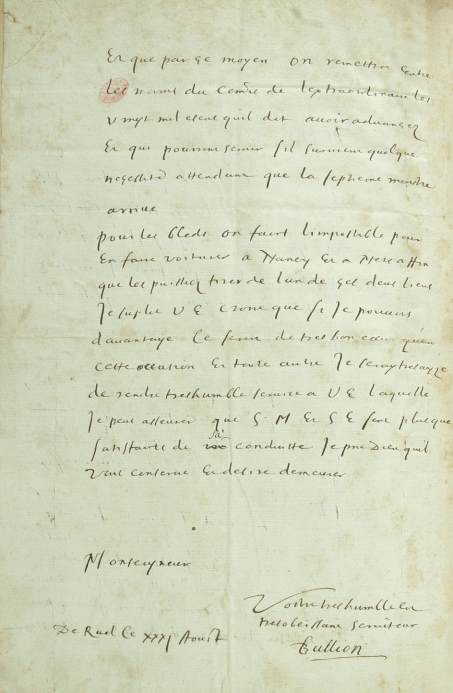 Et que par ce moyen on remettra entre
les mains du Comis de lextraordinaire les
vingt mil escus quil dit avoir advancez
Et qui pourront servir sil survient quelque
necessité attendant que la septieme monstre
arrive
pour les bleds on faict limpossible pour
En faire voiturer a Nancy Et a Mets affin
que les puissiez tirer de lun de ces deux lieux
Je suplie V E croire que si Je pouvois
davantage Ce seroit de tres bon cœur quen
cette occasion Et toute autre Je
de rendre treshumble service a V E laquelle
Je peut asseurer que S M Et S E sont plus que
satisfaits de sa conduitte Je prie Dieu quil
conserve Et desire demeurer
Monseigneur
Vostre treshumble et
tresobeissant serviteur
Bullion
De Ruel Ce XXXJ Aoust